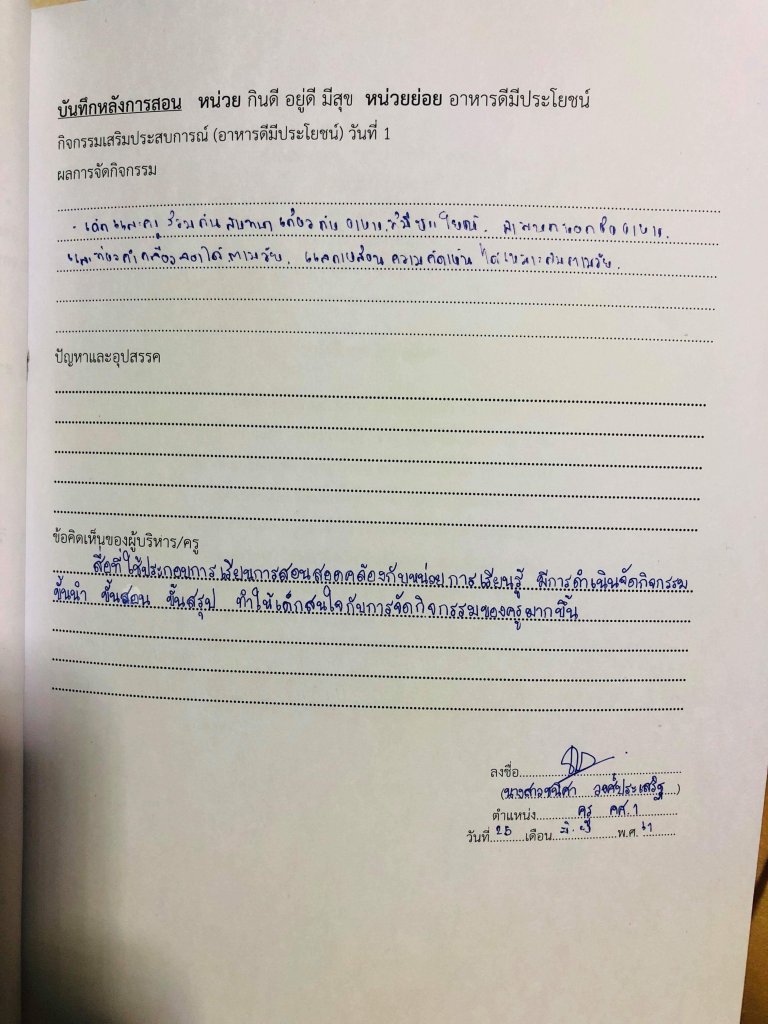 บันทึกหลังการสอน หน่วย กินดี อยู่ดี มีสุข หน่วยย่อย อาหารดีมีประโยชน์
กิจกรรมเสริมประสบการณ์ (อาหารดีมีประโยชน์) วันที่ 1
ผลการจัดกิจกรรม
- เด็กและครูร่วมกันสนทนาเกี่ยวกับอาหารที่มีประโยชน์. สามารถบอกชื่ออาหาร.
และท่องคำคล้องจองได้ตามวัย. แลกเปลี่ยนความคิดเห็นได้เหมาะสมตามวัย.
ปัญหาและอุปสรรค
ข้อคิดเห็นของผู้บริหาร/ครู
สื่อที่ใช้ประกอบการเรียนการสอนสอดคล้องกับหน่วยการเรียนรู้ มีการดำเนินจัดกิจกรรม
ขั้นนำ ขั้นสอน ขั้นสรุป ทำให้เด็กสนใจกับการจัดกิจกรรมของครูมากขึ้น
ลงชื่อ
(นางสาว วงศ์ประเสริฐ)
ตำแหน่ง ครู คศ.1
วันที่ 25 เดือน มิ.ย พ.ศ. 61